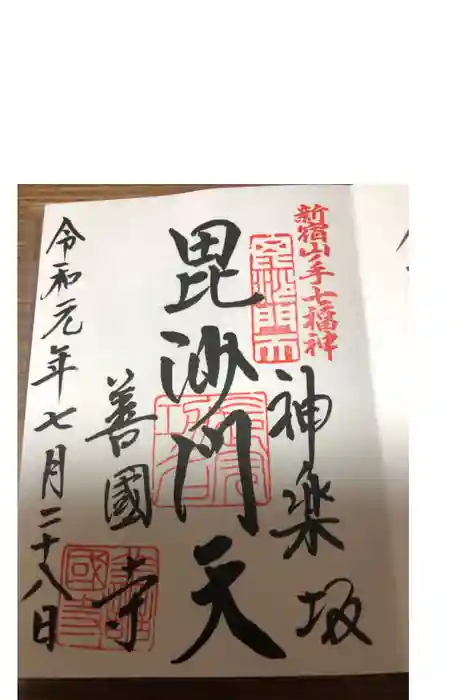 新宿山ノ手七福神
神楽坂
毘沙門天
善國寺
令和元年七月二十八日